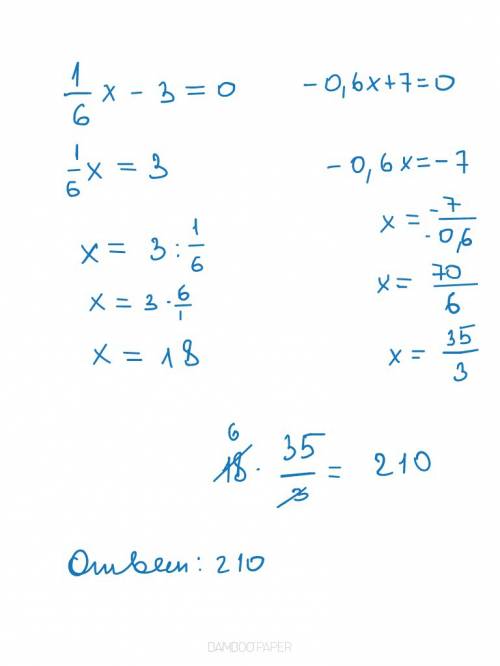 1/6 x - 3 = 0
1/6 x = 3
x = 3 : 1/6
x = 3 · 6/1
x = 18
- 0,6x+7=0
- 0,6x=-7
x = -7/-0,6
x = 70/6
x = 35/3
6
18 · 35/3 = 210
Ответ: 210
BAMBOOPAPER